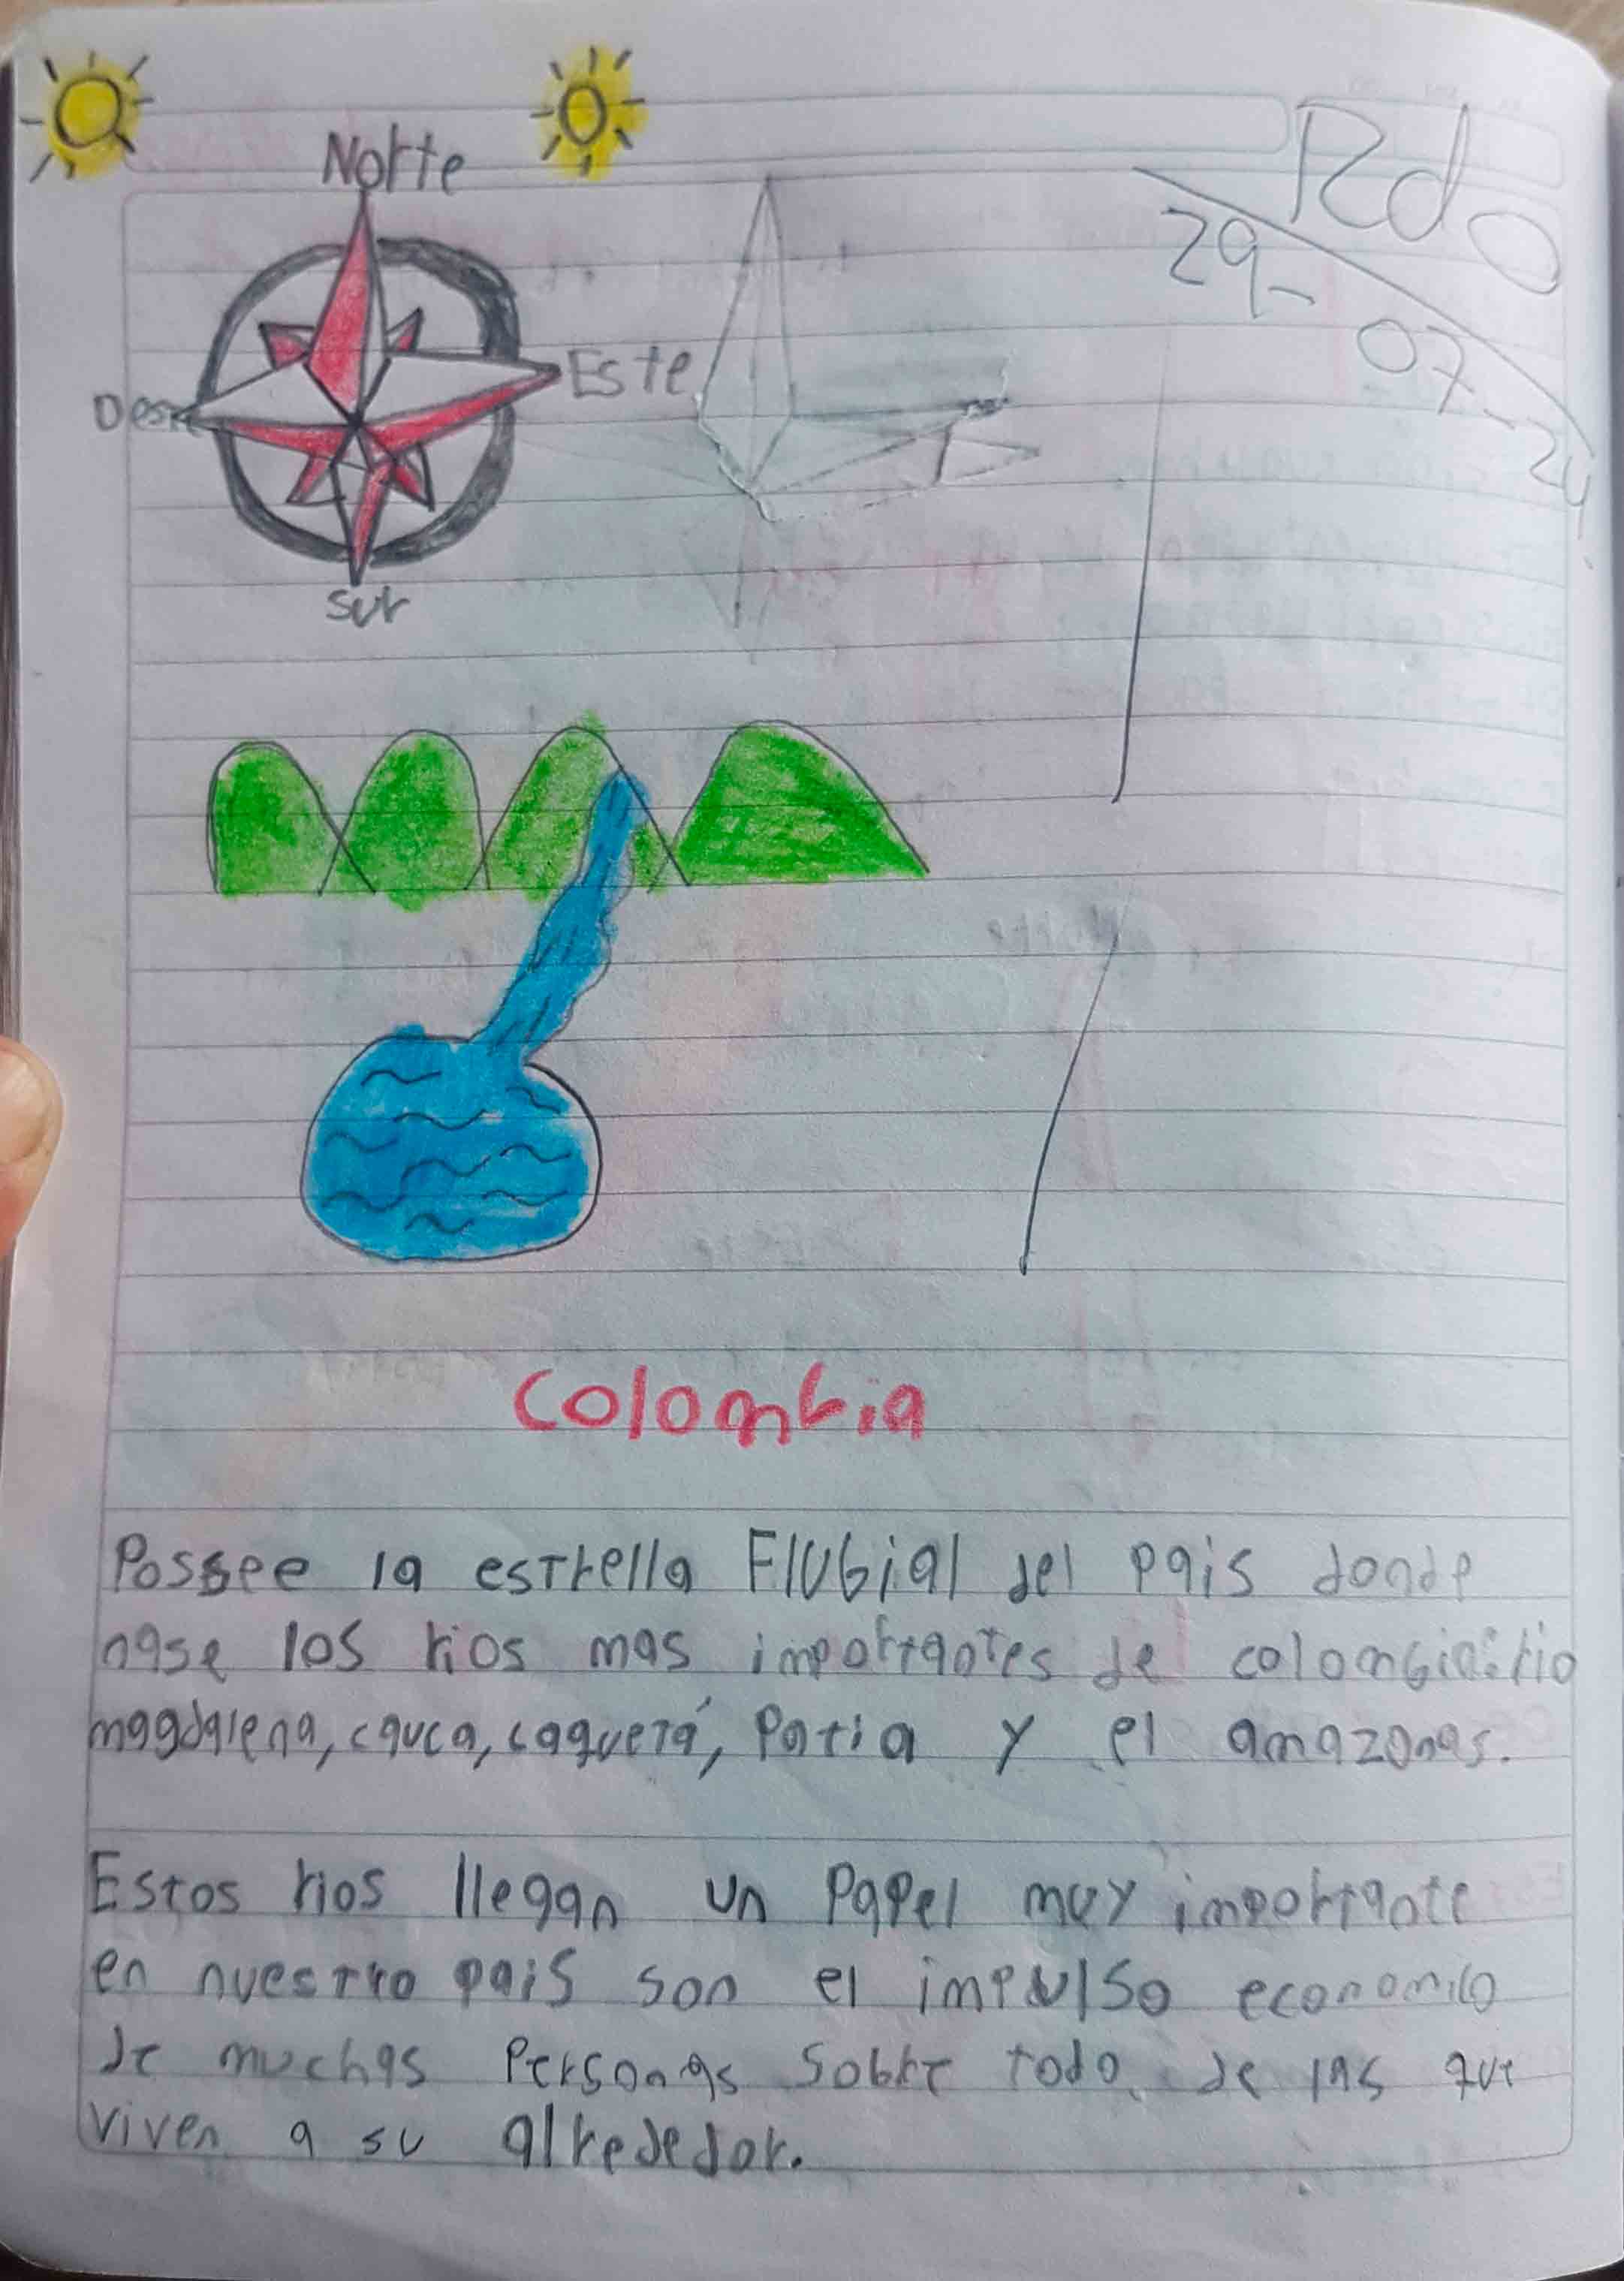 Norte
Rdo
29-07-24
Este
Oeste
sur
Colombia
Possee la estrella Flubial del pais donde
nase los rios mas importantes de colombia: rio
magdalena, cauca, caquetá, Patia y el amazonas.
Estos rios llegan un Papel muy importante
en nuestro pais son el impulso economico
de muchas Personas sobre todo de las que
viven a su alrededor.